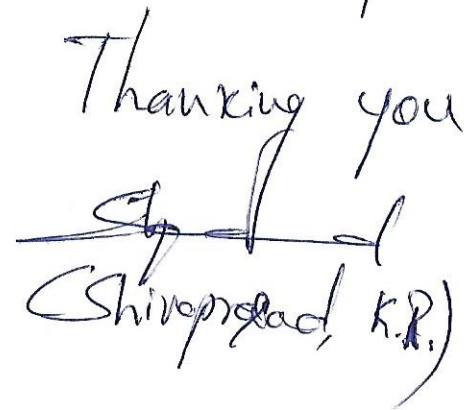 Thanking you
(Shivaprasad, K.R.)